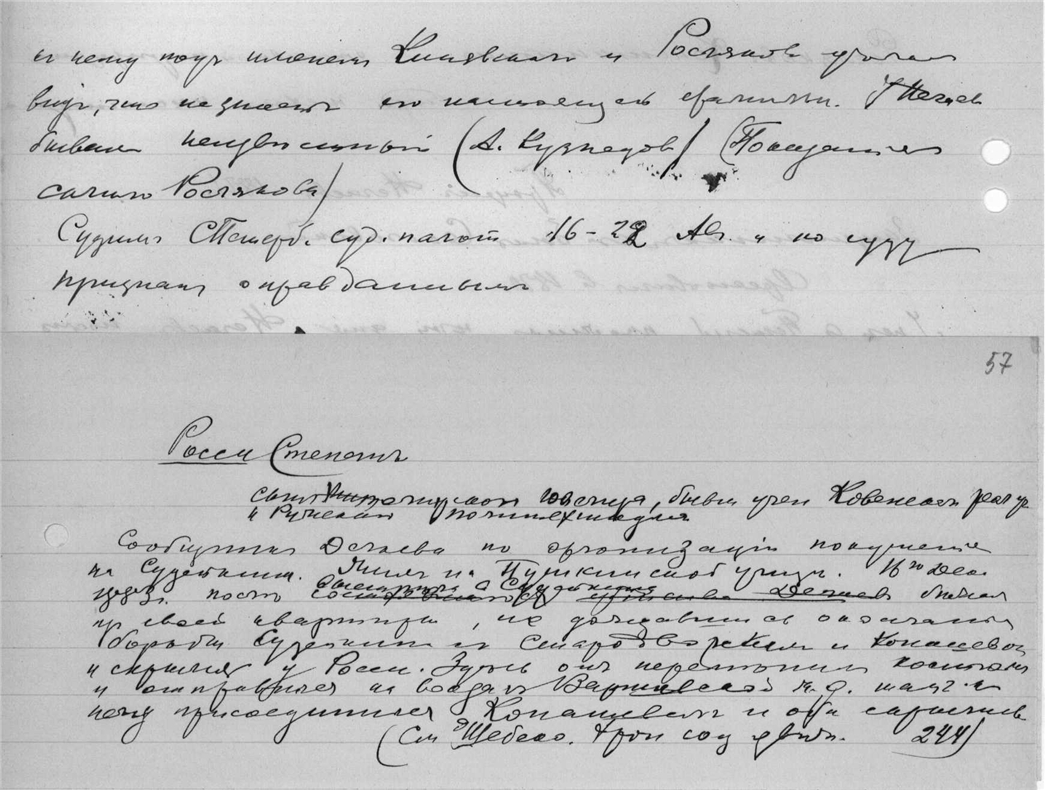 к нему под именем Киневский и Росляков
видно, что не знает его настоящей фамилии.
бывал неизвестный (А. Кузнецов) (Показание
самого Рослякова)
Судим СПетерб. суд. палат 16-22 и по суду
признан оправданным
57
Росси Степан
сын, бывш учен Ковенского реал уч
и Рижского политехникума
Сообщник Дегаева по организации покушения
на Судейкина. Жил на Пушкинской улице. 16го Дек
1883г. после Дегаев бежал
из своей квартиры, не дождавшись окончания
борьбы Судейкина с Стародворским и Конашевичем
и скрылся у Росси. Здесь он переменил костюм
и отправился на вокзал Варшавской ж. д.
нему присоединился Конашевич и оба скрылись
(См Шебеко. Хрон соц движ. 244)